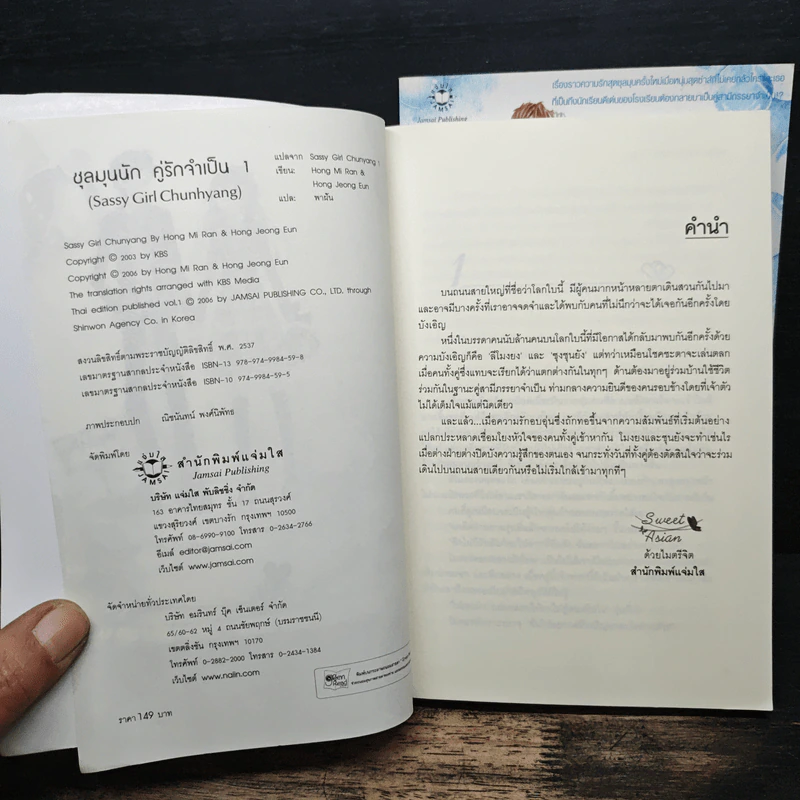 ชุลมุนนัก คู่รักจำเป็น 1
(Sassy Girl Chunhyang)
แปลจาก Sassy Girl Chunyang 1
เขียน: Hong Mi Ran &
Hong Jeong Eun
แปล: พาฝัน
Sassy Girl Chunyang By Hong Mi Ran & Hong Jeong Eun
Copyright © 2003 by KBS
Copyright © 2006 by Hong Mi Ran & Hong Jeong Eun
The translation rights arranged with KBS Media
Thai edition published vol.1 © 2006 by JAMSAI PUBLISHING CO., LTD. through
Shinwon Agency Co. in Korea
สงวนลิขสิทธิ์ตามพระราชบัญญัติลิขสิทธิ์ พ.ศ. 2537
เลขมาตรฐานสากลประจำหนังสือ ISBN-13 978-974-9984-59-8
เลขมาตรฐานสากลประจำหนังสือ ISBN-10 974-9984-59-5
ภาพประกอบปก ณิชนันทน์ พงศ์นิพัทธ
จัดพิมพ์โดย
สำนักพิมพ์แจ่มใส
Jamsai Publishing
บริษัท แจ่มใส พับลิชชิ่ง จำกัด
163 อาคารไทยสมุทร ชั้น 17 ถนนสุรวงศ์
แขวงสุริยวงศ์ เขตบางรัก กรุงเทพฯ 10500
โทรศัพท์ 08-6990-9100 โทรสาร 0-2634-2766
อีเมล์ editor@jamsai.com
เว็บไซต์ www.jamsai.com
จัดจำหน่ายทั่วประเทศโดย
บริษัท อมรินทร์ บุ๊ค เซ็นเตอร์ จำกัด
65/60-62 หมู่ 4 ถนนชัยพฤกษ์ (บรมราชชนนี)
เขตตลิ่งชัน กรุงเทพฯ 10170
โทรศัพท์ 0-2882-2000 โทรสาร 0-2434-1384
เว็บไซต์ www.naiin.com
ราคา 149 บาท
Jamsai Publishing
เรื่องราวความรักสุดชุลมุนครั้งใหม่เมื่อหนุ่มสุดซ่าส์ที่ไม่เคยกลัวใคร
ที่เป็นถึงนักเรียนดีเด่นของโรงเรียนต้องกลายมาเป็นคู่สามีภรรยา
คำนำ
บนถนนสายใหญ่ที่ชื่อว่าโลกใบนี้ มีผู้คนมากหน้าหลายตาเดินสวนกันไปมา
และอาจมีบางครั้งที่เราอาจจดจำและได้พบกับคนที่ไม่นึกว่าจะได้เจอกันอีกครั้งโดย
บังเอิญ
หนึ่งในบรรดาคนนับล้านคนบนโลกใบนี้ที่มีโอกาสได้กลับมาพบกันอีกครั้งด้วย
ความบังเอิญก็คือ 'ลีโมงยง' และ 'ซุงชุนยัง' แต่ทว่าเหมือนโชคชะตาจะเล่นตลก
เมื่อคนทั้งคู่ซึ่งแทบจะเรียกได้ว่าแตกต่างกันในทุกๆ ด้านต้องมาอยู่ร่วมบ้านใช้ชีวิต
ร่วมกันในฐานะคู่สามีภรรยาจำเป็น ท่ามกลางความยินดีของคนรอบข้างโดยที่เจ้าตัว
ไม่ได้เต็มใจแม้แต่นิดเดียว
และแล้ว...เมื่อความรักอบอุ่นซึ่งถักทอขึ้นจากความสัมพันธ์ที่เริ่มต้นอย่าง
แปลกประหลาดเชื่อมโยงหัวใจของคนทั้งคู่เข้าหากัน โมงยงและชุนยังจะทำเช่นไร
เมื่อต่างฝ่ายต่างปิดบังความรู้สึกของตนเอง จนกระทั่งวันที่ทั้งคู่ต้องตัดสินใจว่าจะร่วม
เดินไปบนถนนสายเดียวกันหรือไม่เริ่มใกล้เข้ามาทุกทีๆ
Sweet
Asian
ด้วยไมตรีจิต
สำนักพิมพ์แจ่มใส